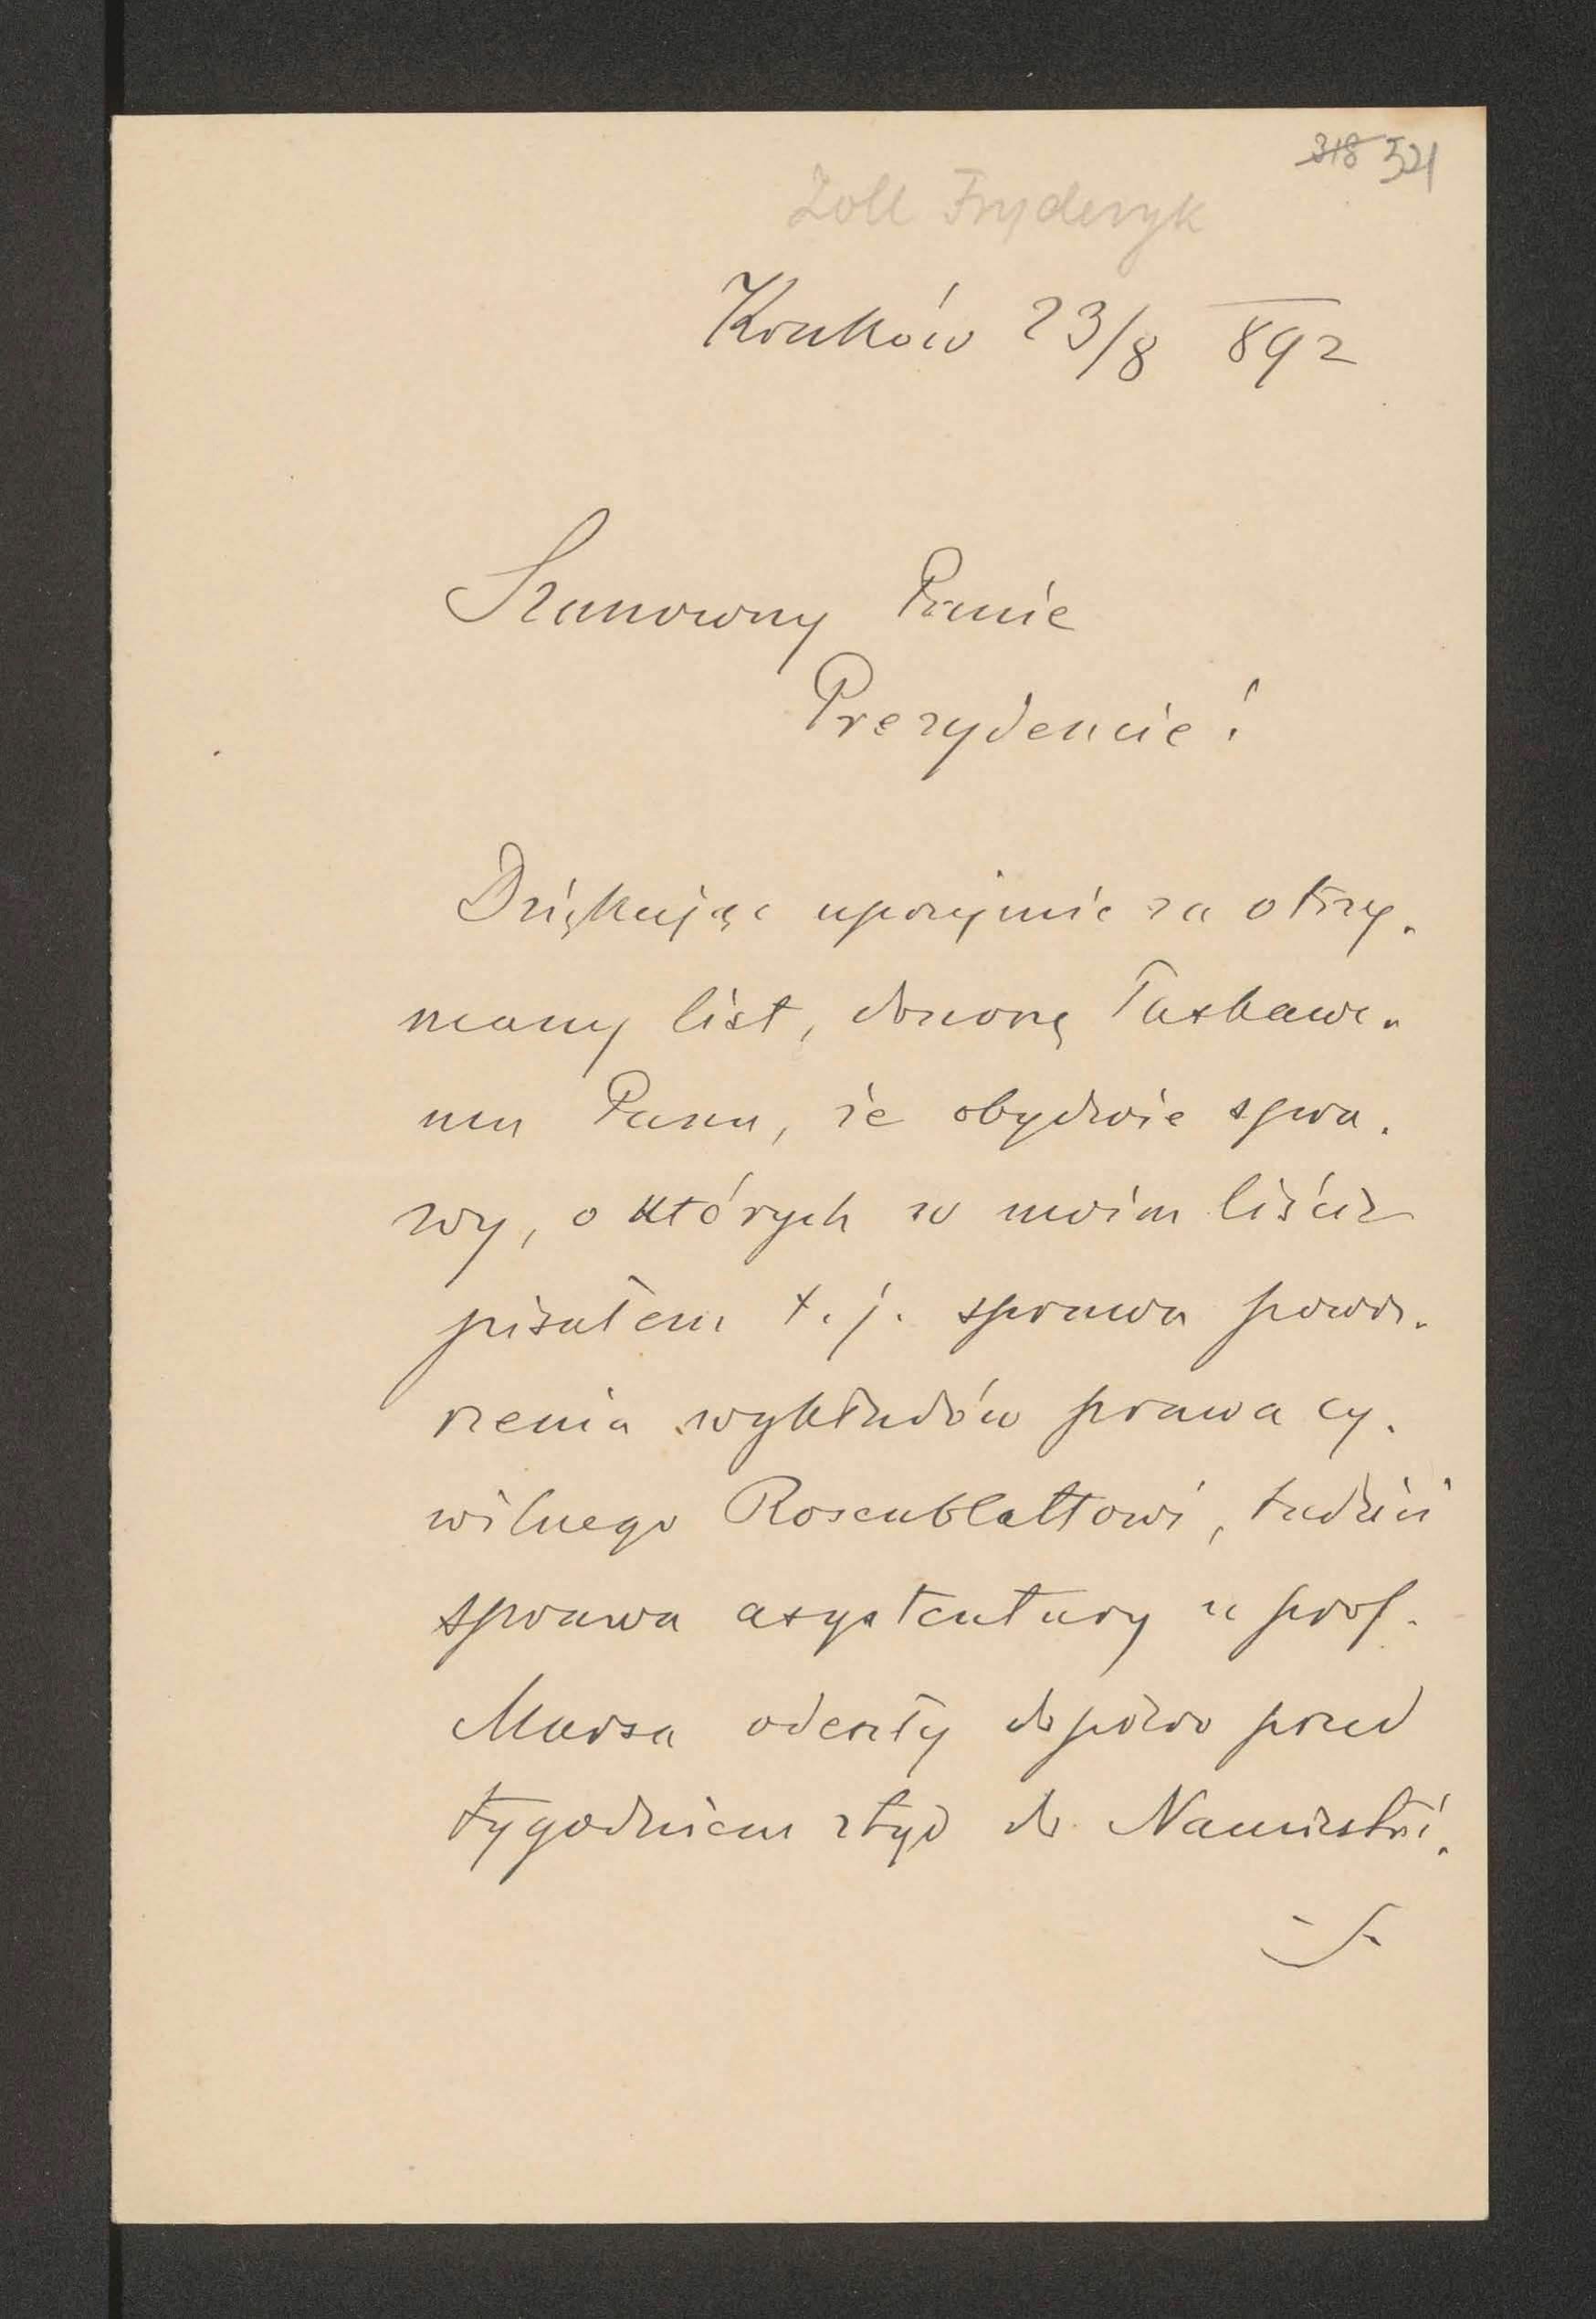 318 521
Zoll Fryderyk
Kraków 23/8 892
Szanowny Panie
Prezydencie!
Dziękując uprzejmie za otrzy-
many list, donoszę Łaskawe-
mu Panu, że obydwie spra-
wy, o których w moim liście
pisałem t.j. sprawa powie-
rzenia wykładów prawa cy-
wilnego Rosenblattowi, tudzież
sprawa asystentury u prof.
Marsa odeszły dopiero przed
tygodniem stąd do Namiestni-